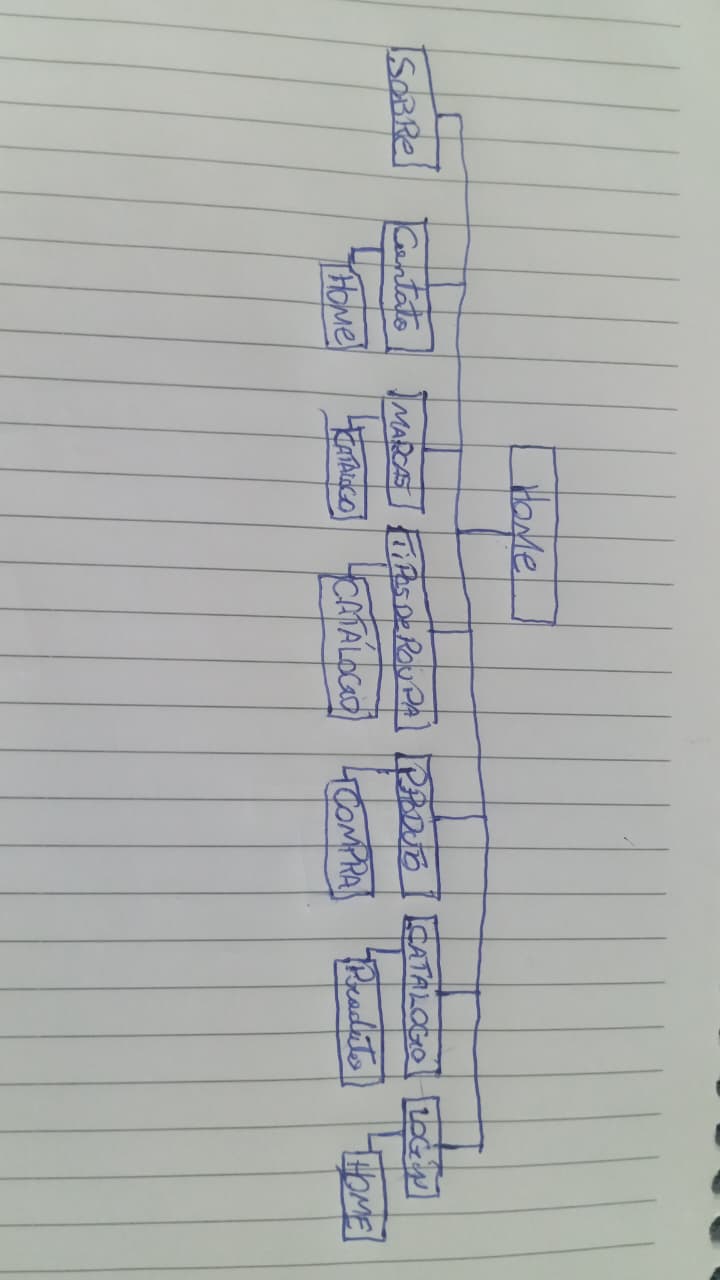 HOME
SOBRE
Contato
HOME
MARCAS
CATALOGO
TIPOS DE ROUPA
CATÁLOGO
PRODUTO
COMPRA
CATALOGO
Produto
LOGIN
HOME